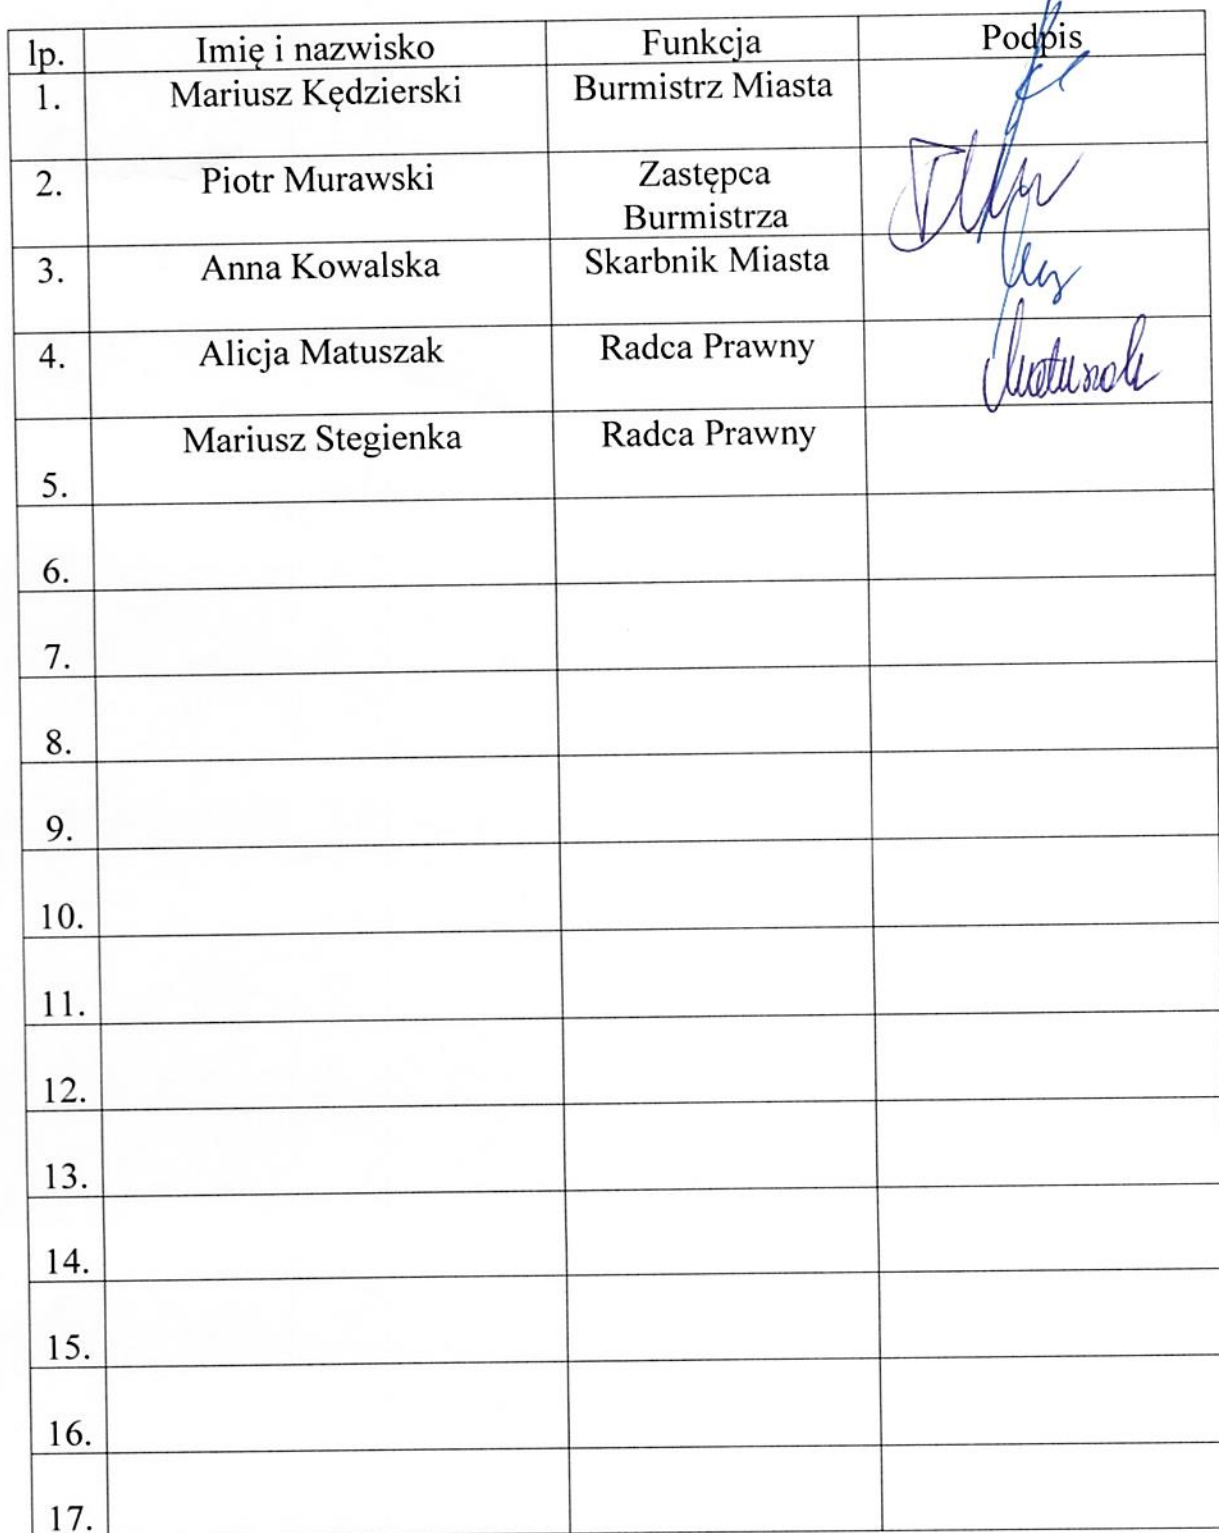 lp. Imię i nazwisko Funkcja Podpis
1. Mariusz Kędzierski Burmistrz Miasta
2. Piotr Murawski Zastępca
Burmistrza
3. Anna Kowalska Skarbnik Miasta
4. Alicja Matuszak Radca Prawny Matuszak
Mariusz Stegienka Radca Prawny
5.
6.
7.
8.
9.
10.
11.
12.
13.
14.
15.
16.
17.